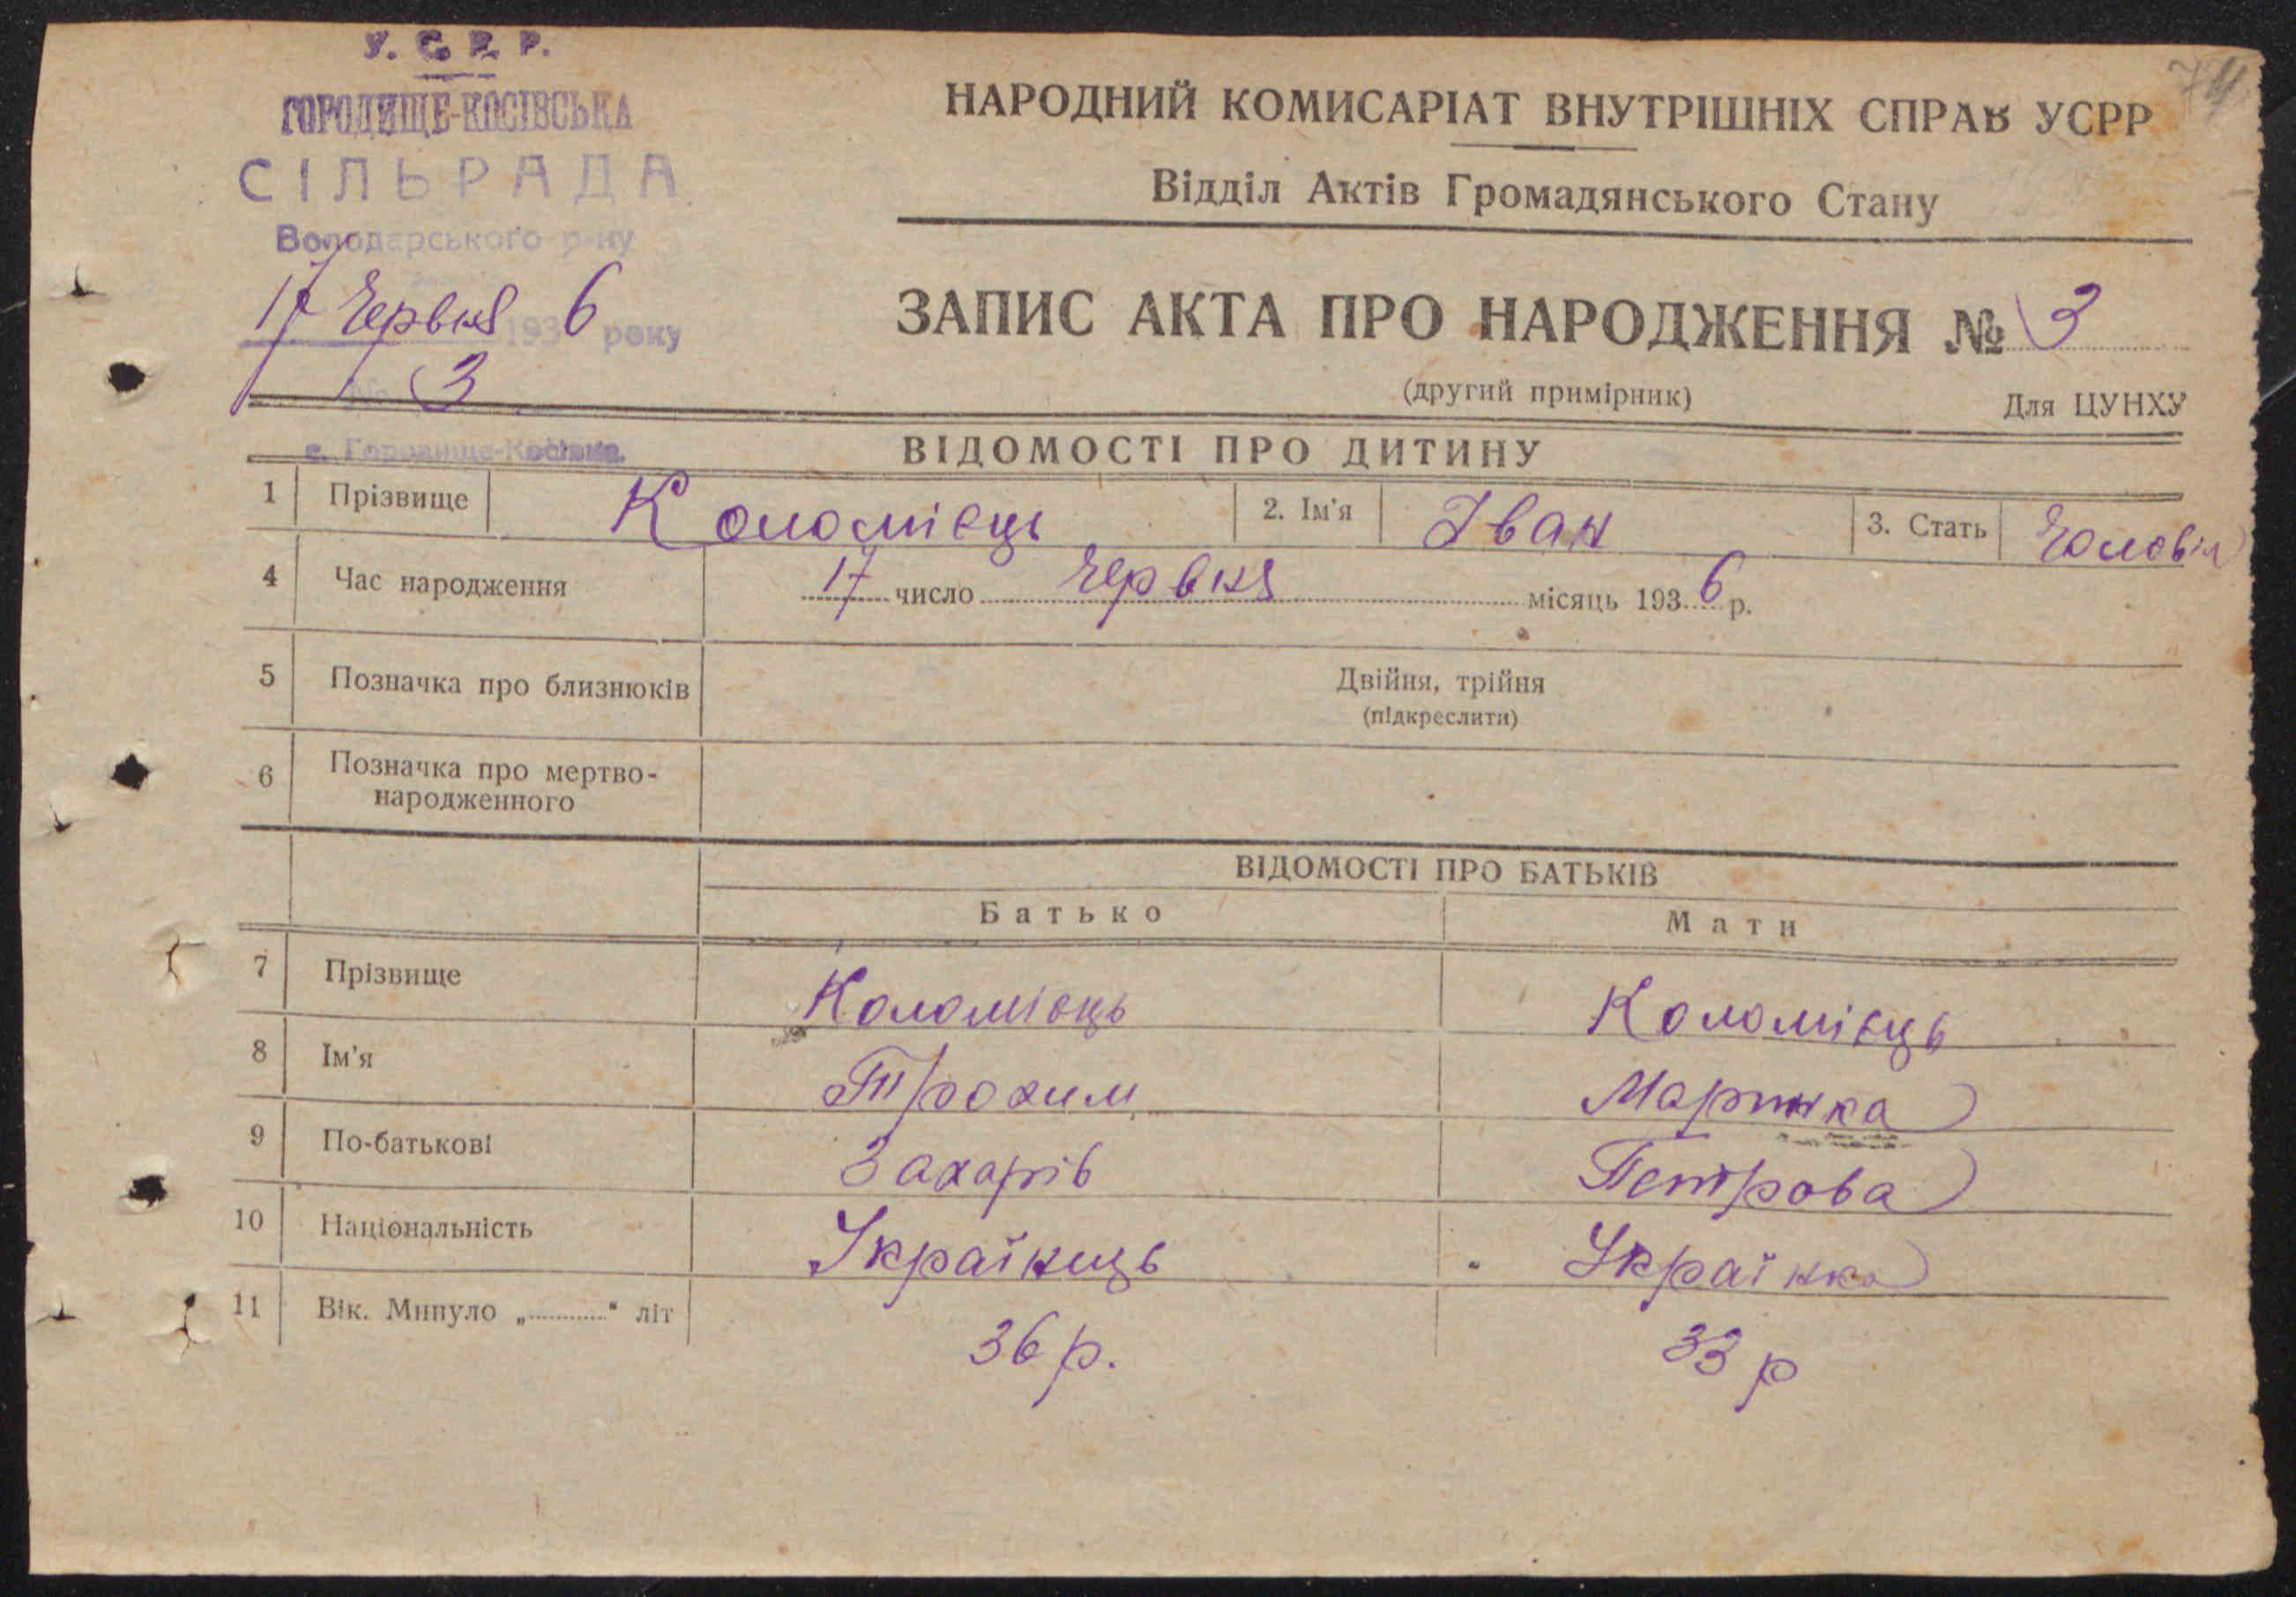 У. С. Р. Р.
ГОРОДИЩЕ-КОСІВСЬКА
СІЛЬРАДА
Володарського р-ну
17 Червня 1936 року
№ 3
с. Городище-Косівка
74
НАРОДНИЙ КОМИСАРІАТ ВНУТРІШНІХ СПРАВ УСРР
Відділ Актів Громадянського Стану
ЗАПИС АКТА ПРО НАРОДЖЕННЯ № 3
(другий примірник) Для ЦУНХУ
ВІДОМОСТІ ПРО ДИТИНУ
1 Прізвище Коломієць 2. Ім'я Іван 3. Стать Чоловіч
4 Час народження 17 число Червня місяць 1936 р.
5 Позначка про близнюків Двійня, трійня
(підкреслити)
6 Позначка про мертво-
народженного
ВІДОМОСТІ ПРО БАТЬКІВ
Батько Мати
7 Прізвище Коломієць Коломієць
8 Ім'я Трохим Маринка
9 По-батькові Захарів Петрова
10 Національність Українець Українка
11 Вік. Минуло „..........“ літ 36 р. 33 р